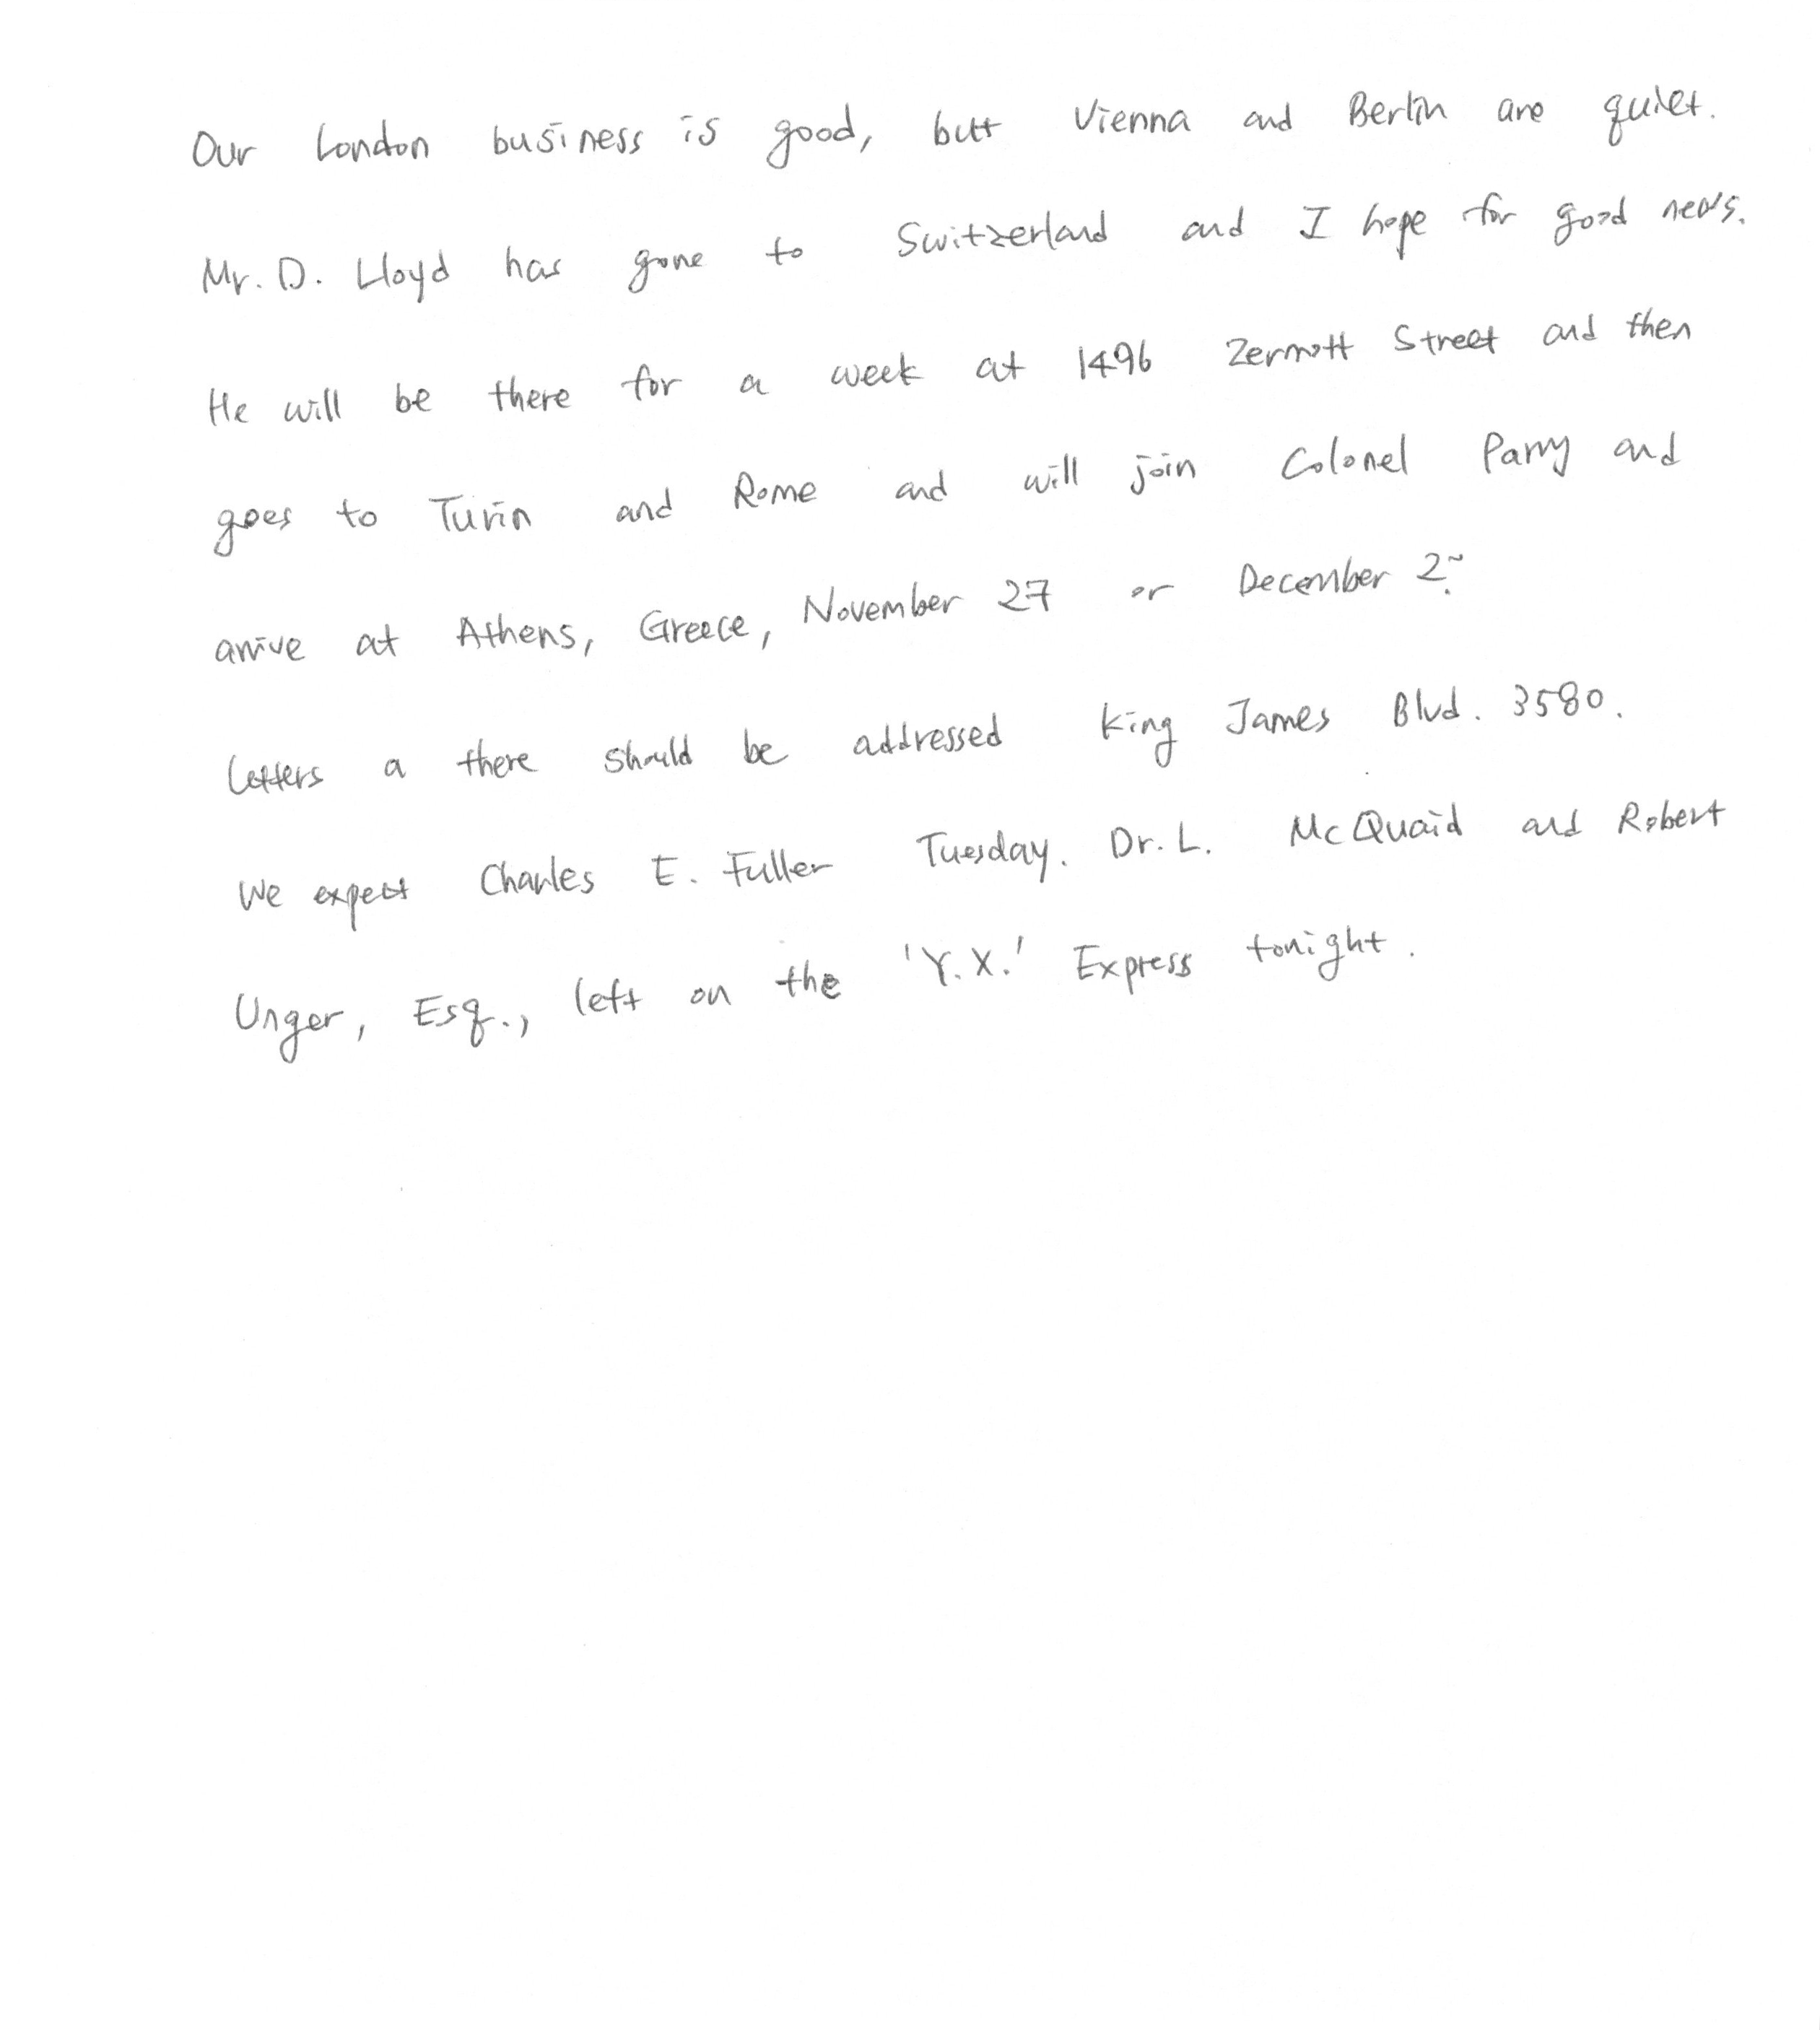 Our London business is good, but Vienna and Berlin are quiet.
Mr. D. Lloyd has gone to Switzerland and I hope for good news.
He will be there for a week at 1496 Zermott Street and then
goes to Turin and Rome and will join Colonel Parry and
arrive at Athens, Greece, November 27 or December 2.
Letters a there should be addressed King James Blvd. 3580.
We expect Charles E. Fuller Tuesday. Dr. L. McQuaid and Robert
Unger, Esq., left on the 'Y.X.' Express tonight.